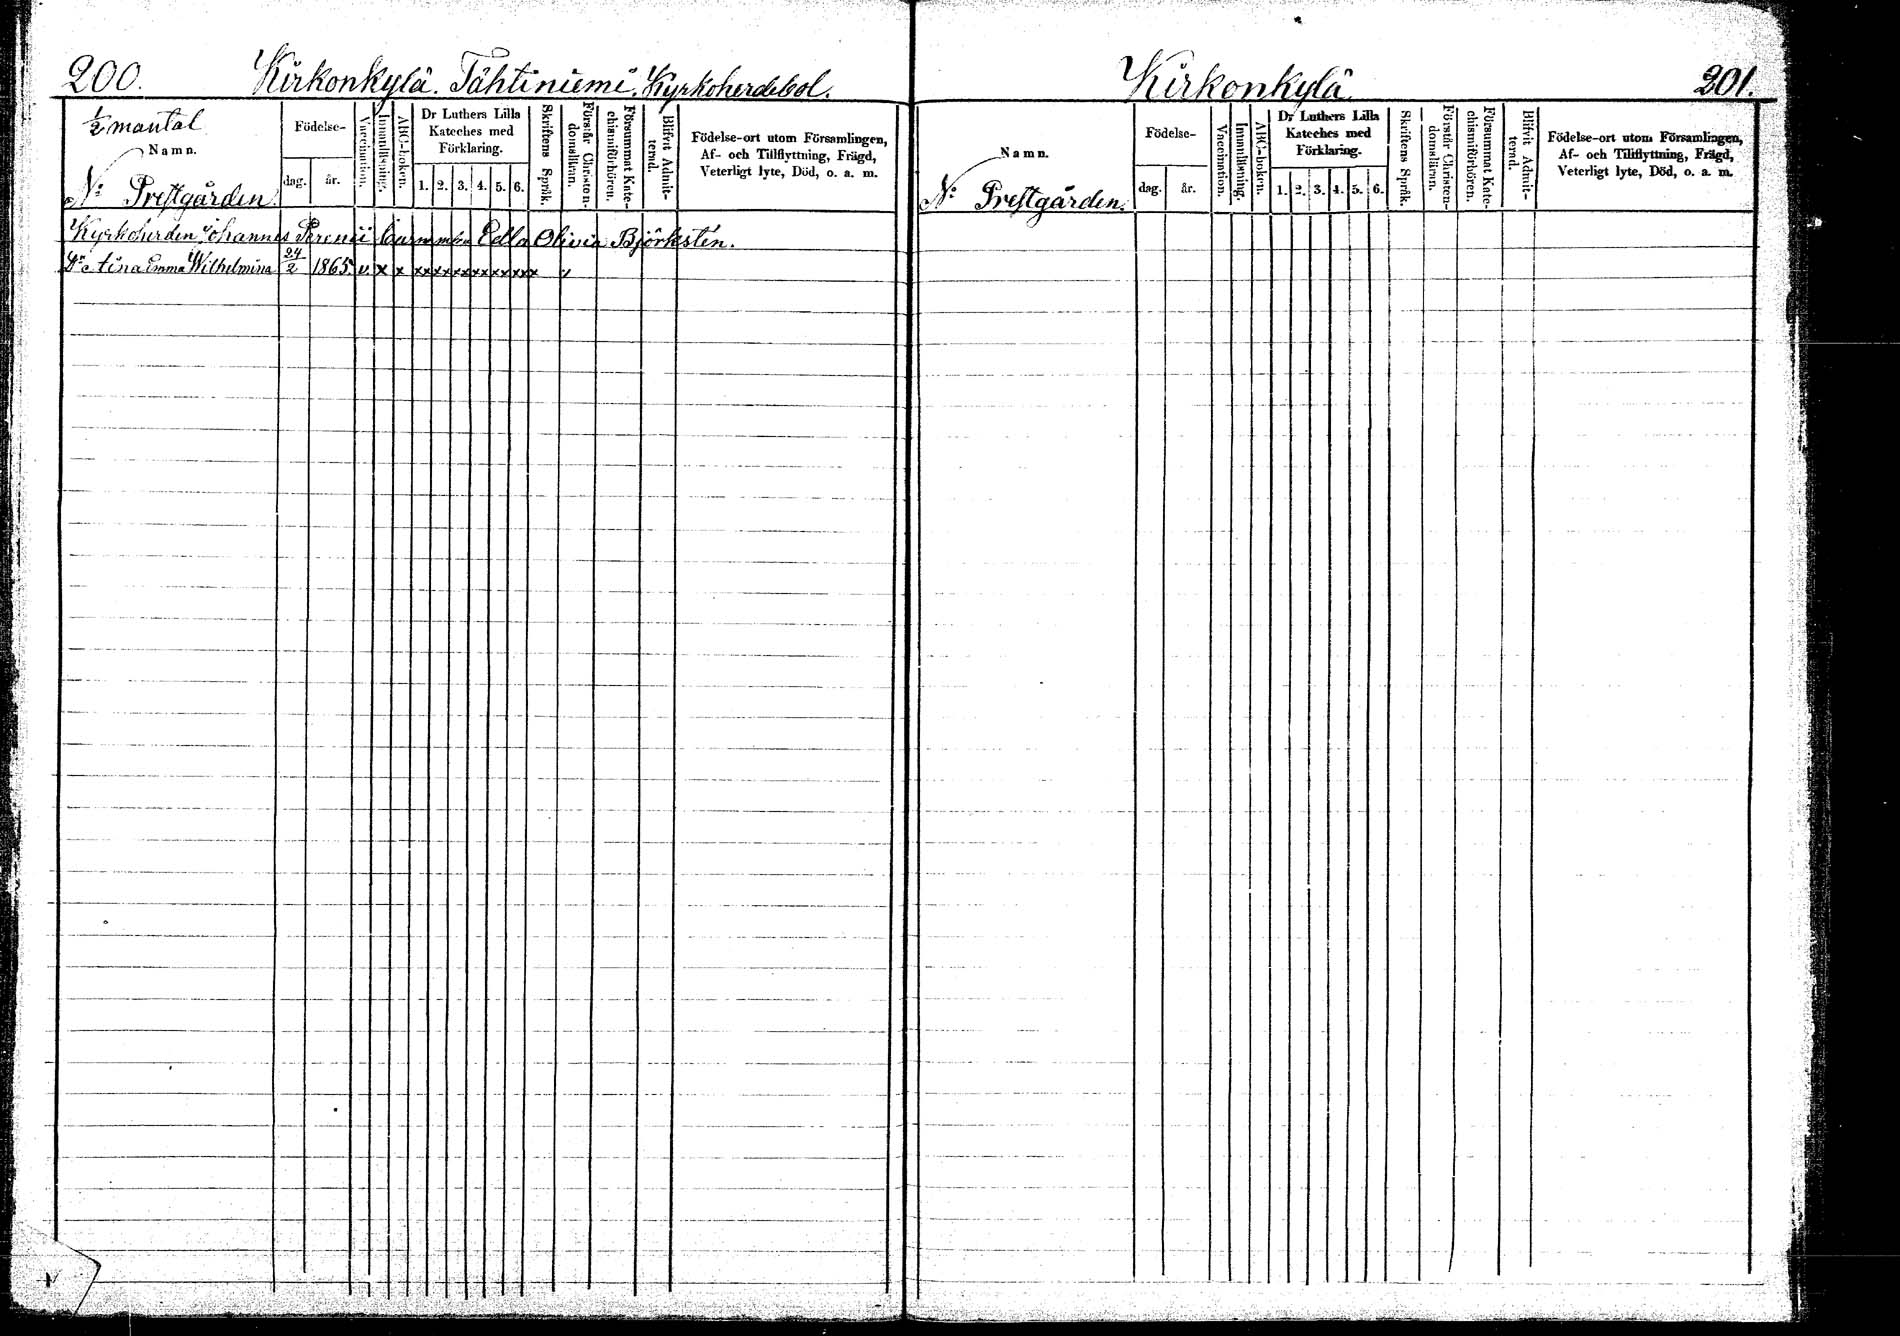 200. Kirkonkylä. Tähtiniemi. Kyrkoherdebol.
1/2 mantal
Namn.
No Prestgården.
Födelse-
dag. år.
Vaccination.
Innanläsning.
ABC-boken.
Dr Luthers Lilla
Kateches med
Förklaring.
1. 2. 3. 4. 5. 6.
Skriftens Språk.
Förstår Christen-
domsläran.
Försummat Kate-
chismiförhören.
Blifvit Admit-
terad.
Födelse-ort utom Församlingen,
Af- och Tillflyttning, Frägd,
Veterligt lyte, Död, o. a. m.
Kyrkoherden Johannes Edla Olivia Björkstén.
Emma Wilhelmina 24/2 1865 v x x x x x x x x x x x x x x x v
Kirkonkylä 201.
Namn.
No Prestgården.
Födelse-
dag. år.
Vaccination.
Innanläsning.
ABC-boken.
Dr Luthers Lilla
Kateches med
Förklaring.
1. 2. 3. 4. 5. 6.
Skriftens Språk.
Förstår Christen-
domsläran.
Försummat Kate-
chismiförhören.
Blifvit Admit-
terad.
Födelse-ort utom Församlingen,
Af- och Tillflyttning, Frägd,
Veterligt lyte, Död, o. a. m.